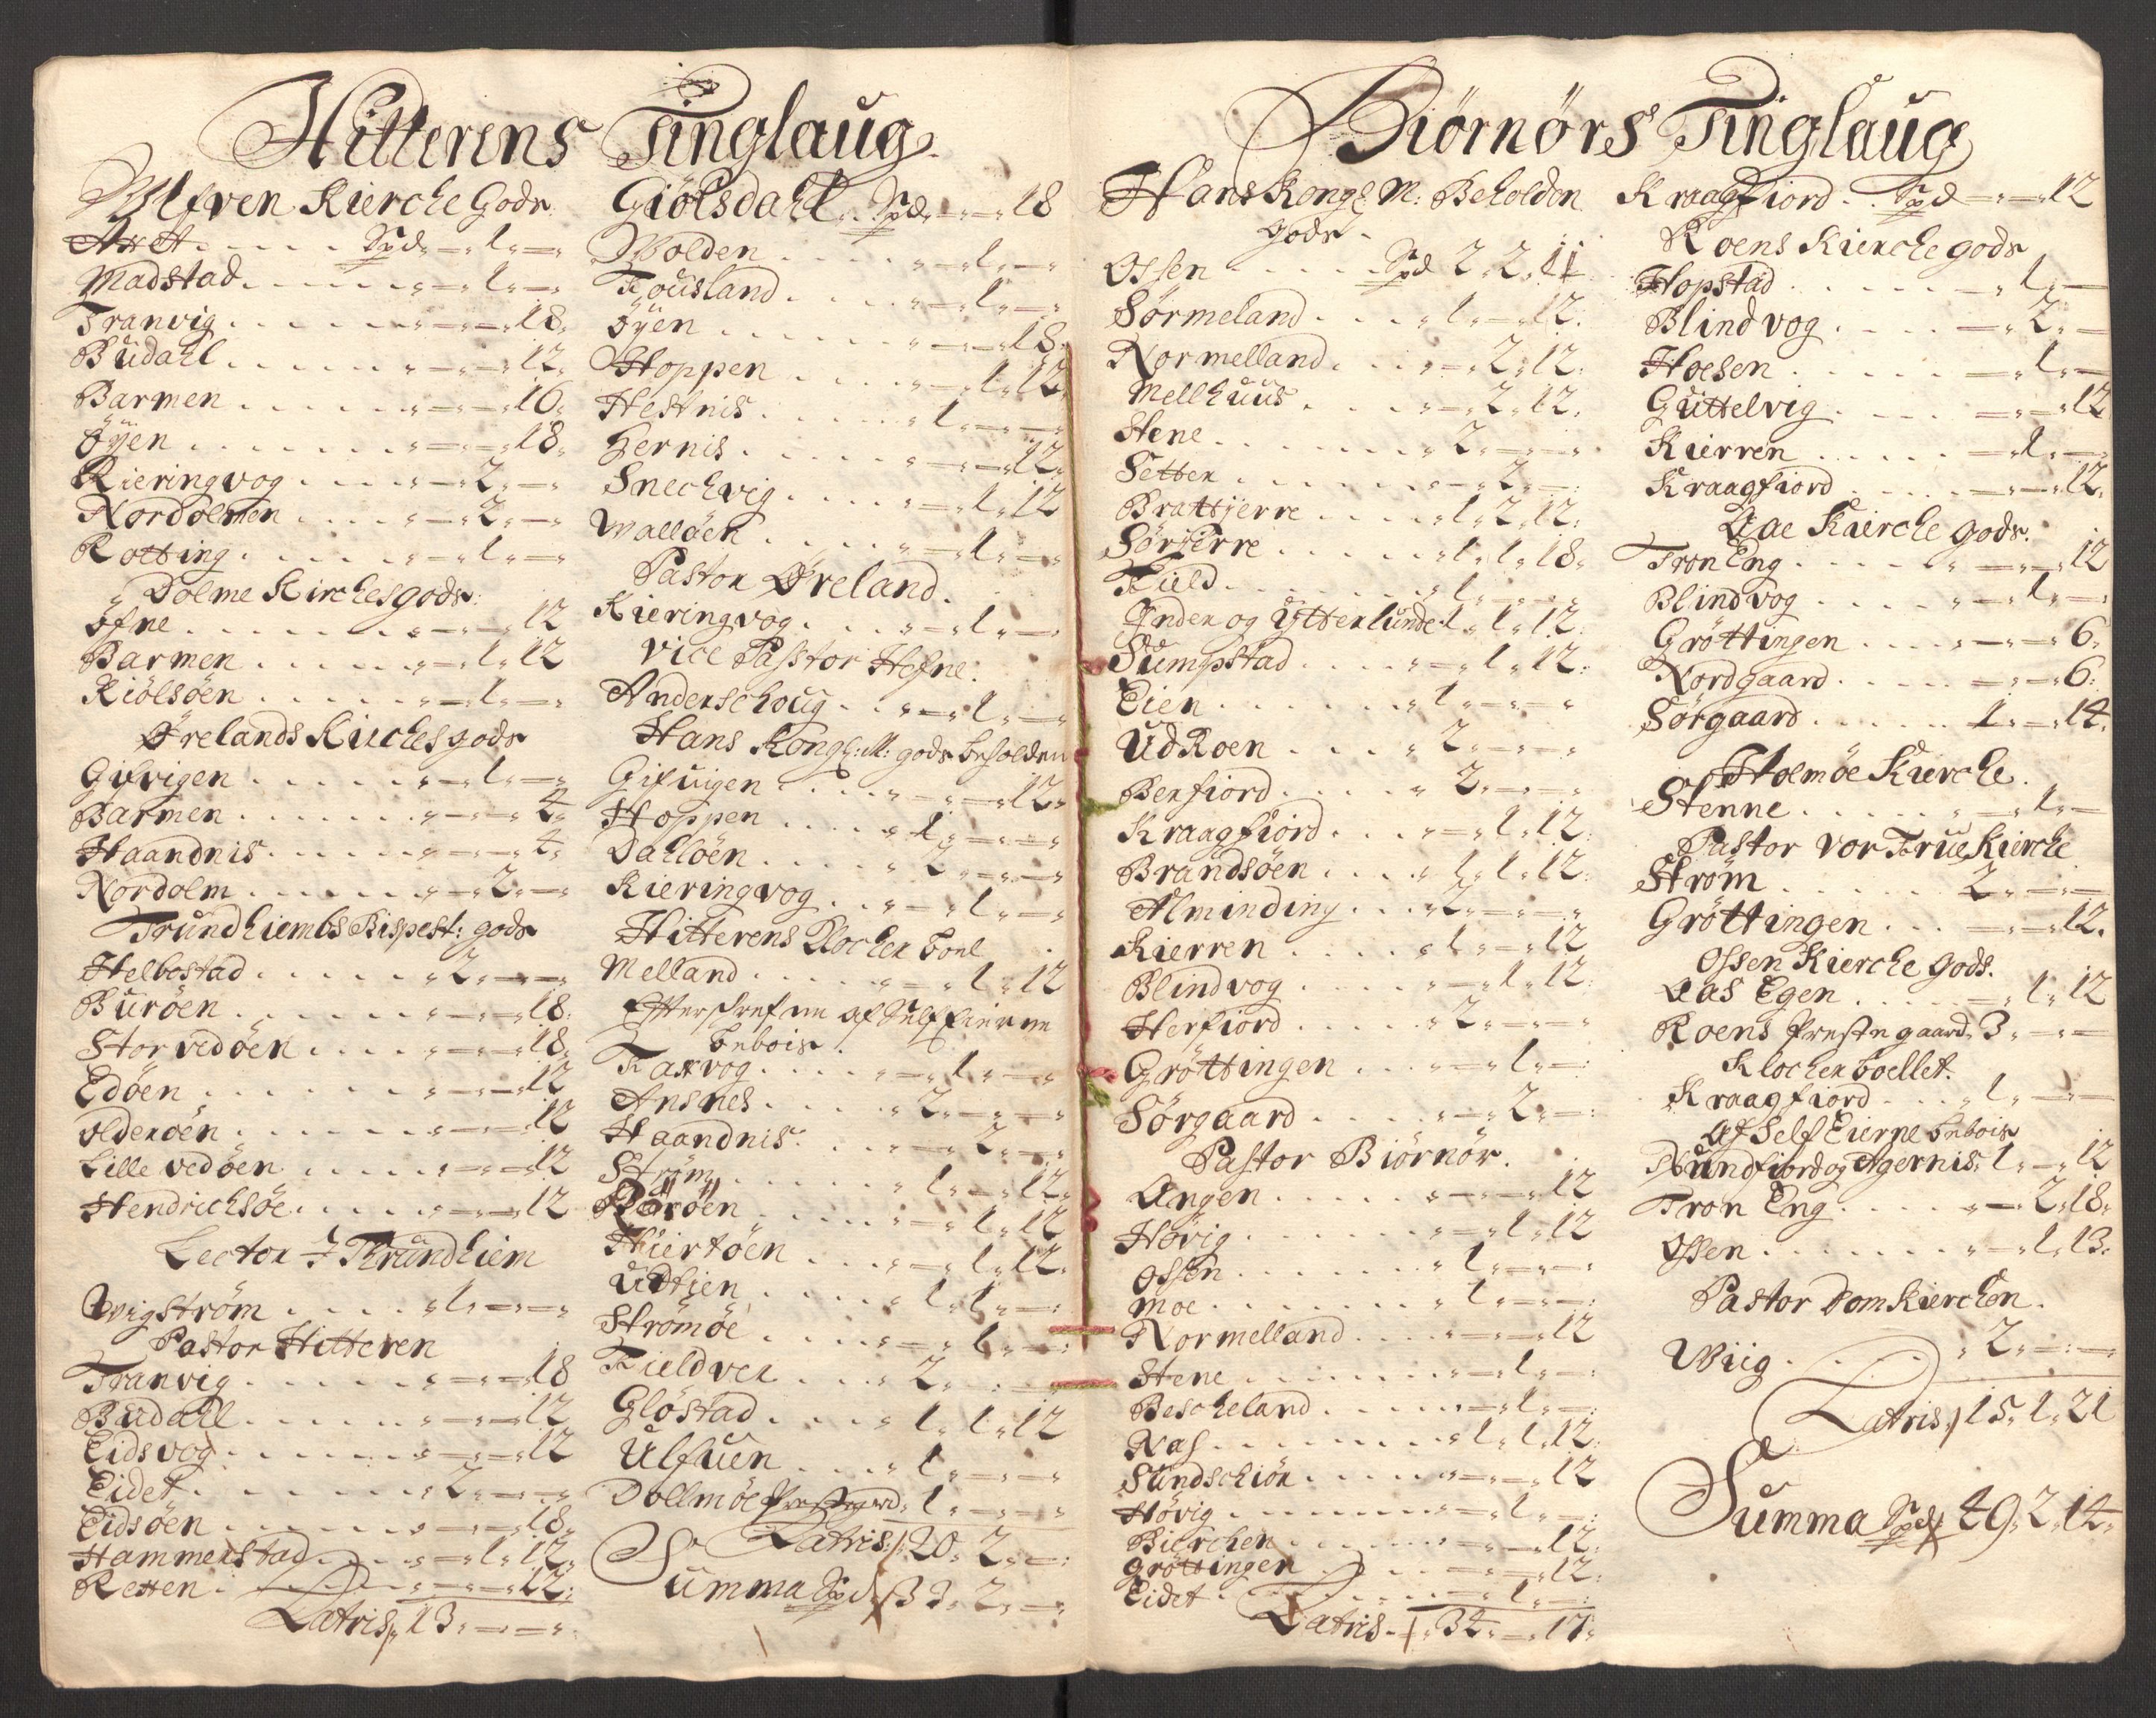 Hitterens Tinglaug
Ulfven Kierche Gods
Axet . . . . . Spd - " 1 " -
Madstad . . . . . " - " 1 " -
Tranvig . . . . . " - " - " 18
Budahl . . . . . " - " - " 12
Barmen . . . . . " - " - " 16
Öÿen . . . . . " - " - " 18
Kieringvog . . . . " - " 2 " -
Nordolmen . . . . " - " 2 " -
Rotting . . . . . " - " 1 " -
Dolme Kirches gods
Öfne . . . . . " - " - " 12
Barmen . . . . . " - " 1 " 12
Kiölsöen . . . . . " - " 1 " -
Ørelands Kirches gods
Gifvigen . . . . . " - " 1 " -
Barmen . . . . . " - " - " 4
Haandnis . . . . . " - " - " 4
Nordolm . . . . . " - " 2 " -
Trundhiembs Bispest: gods
Helbostad . . . . . " 2 " - " -
Buröen . . . . . " - " - " 18
Storvedöen . . . . " - " - " 18
Edöen . . . . . " - " - " 12
Olderöen . . . . . " - " - " 12
Lille vedöen . . . . " - " - " 12
Hendrichsöe . . . . " - " - " 12
Lector i Thrundhiem
Wigström . . . . " 1 " - " -
Pastor Hitteren
Tranvig . . . . . " - " - " 18
Budahl . . . . . " - " - " 12
Eidsvog . . . . . " - " - " 12
Eidet . . . . . " 2 " - " -
Eidsöen . . . . . " - " - " 18
Hammerstad . . . " - " 1 " 12
Retten . . . . . " - " - " 12
Latris 13 " - " -
Giölsdahl . . Spd " - " - " 18
Wolden . . . . . " - " 1 " -
Fousland . . . . " - " 1 " -
Öyen . . . . . " - " - " 18
Hoppen . . . . " - " 1 " 12
Hestnis . . . . " 1 " - " -
Gernis . . . . " - " - " 12
Snechvig . . . . " - " 1 " 12
Wallöen . . . . " - " 1 " -
Pastor Øreland
Kieringvog . . . " - " 1 " -
Vice Passtor Hefne
Anderschoug . . " - " 1 " -
Hans Kongl: M: gods beholden
Gifuigen . . . . " - " - " 12
Hoppen . . . . " 1 " - " -
Dahlöen . . . . " 2 " - " -
Kieringvog . . . " - " 1 " -
Hitterens Klocher boel
Melland . . . . " - " 1 " 12
Efterskrefne af Self Eierne
bebois
Faxvog . . . . " - " 1 " -
Ansnes . . . . " 2 " - " -
Haandnis . . . " - " 2 " -
Ström . . . . " 1 " - " 12
Böröen . . . . " - " 1 " 12
Hiertöen . . . " - " 1 " 12
Udtien . . . . " 1 " 1 " -
Strömöe . . . . " - " 1 " -
Fieldver . . . . " 2 " - " -
Glöstad . . . . " 1 " 1 " 12
Ulfuen . . . . " 1 " - " -
Dollmöe Prestegaard " 1 " - " -
Latris 20 " 2 " -
Summa Spd 33 " 2 " -
Biörnörs Tinglaug
Hans Kongl: M: Beholden
gods
Ossen . . . . Spd 2 " 2 " 11
Sörmeland . . . " 1 " - " 12
Normelland . . . " - " 2 " 12
Mellhuus . . . . " - " 2 " 12
Stene . . . . . " 2 " - " -
Setter . . . . . " - " 2 " -
Brattjerre . . . . " 1 " 2 " 12
Sörjerre . . . . " 1 " 1 " 18
Field . . . . . " 1 " - " -
Inder og Ytterlunde 1 " 1 " 12
Sumpstad . . . . " - " 1 " 12
Eien . . . . . " 1 " - " -
UdRoen . . . . " 2 " - " -
Berfiord . . . . " 2 " - " -
Kraagfiord . . . " - " 1 " 12
Brandsöen . . . . " 1 " 1 " 12
Alminding . . . " 2 " - " -
Kierren . . . . " 1 " - " 12
Blindvog . . . . " - " 1 " 12
Herfiord . . . . " 2 " - " -
Gröttingen . . . " - " 1 " -
Sörgaard . . . . " - " 2 " -
Pastor Biörnör
Angen . . . . . " - " - " 12
Hövig . . . . . " - " 1 " 12
Ossen . . . . . " 1 " - " -
Moe . . . . . " 1 " - " -
Normelland . . . " - " - " 12
Stene . . . . . " - " 1 " -
Bescheland . . . . " - " 1 " -
Nas . . . . . " 1 " 1 " 12
Sundschiör . . . . " - " - " 12
Hövig . . . . . " - " 1 " -
Bierchen . . . . " - " - " 12
Gröttingen . . . . " - " - " 12
Eidet . . . . . " - " 1 " -
Latris 34 " - " 17
Kraagfiord . . Spd - " - " 12
Roens Kierche gods
Hopstad . . . . . " 1 " -
Blindvog . . . . - " 2 " -
Hoesen . . . . . - " 1 " -
Guttelvig . . . . - " - " 12
Kierren . . . . . - " 1 " -
Kraagfiord . . . . " - " - " 12
Aae Kierche gods
TronEng . . . . " - " - " 12
Blindvog . . . . " - " 1 " -
Gröttingen . . . . " - " - " 6
Nordgaard . . . . - " - " 6
Sörgaard . . . . . 1 " - " 14
Stolmöe Kierche
Stenne . . . . . " - " 1 " -
Pastor vor Frue Kierche
Ström . . . . . 2 " - " -
Gröttingen . . . - " - " 12
Ossen Kierche gods
Aas Egen . . . . - " 1 " 12
Roens Prestegaard 3 " - " -
Klocher boellet
Kraagfiord . . . " 1 " - " -
Af Self Eierne bebois
Sundfiord og Agernis 1 " - " 12
Tron Eng . . . . " - " 2 " 18
Ossen . . . . . " - " 1 " 13
Pastor Dom Kierchen
Wiig . . . . . " 2 " - " -
Latris 15 " 1 " 21
Summa Spd 49 " 2 " 14